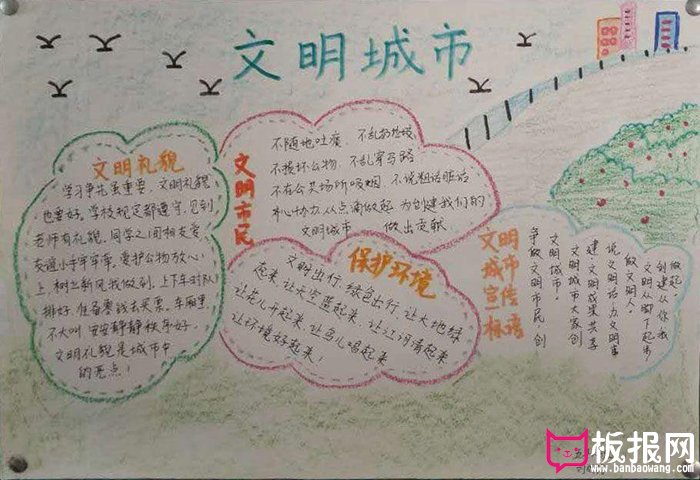 文明城市
文明礼貌
学习争光虽重要，文明礼貌
也要好，学校规定都遵守，见到
老师有礼貌，同学之间相友爱，
友谊小手牢牢牵，爱护公物放心
上，树立新风我做到，上下车时队
排好，准备零钱去买票，车厢里
不大叫，安安静静秩序好，
文明礼貌是城市中
的亮点！
文明市民
不随地吐痰 不乱扔垃圾
不损坏公物 不乱穿马路
不在公共场所吸烟，不说粗话脏话
从点滴做起 为创建我们的
文明城市 做出贡献
保护环境
文明出行，绿色出行，让大地绿
起来，让天空蓝起来，让江河清起来
让花儿开起来，让鸟儿唱起来
让环境好起来！
文明
城市
宣传
标语
做起！
创建从你我
文明从脚下起步
做文明人！
说文明话办文明事
建文明成果共享
文明城市大家创
文明城市！
争做文明市民创
板报网
www.banbaowang.com